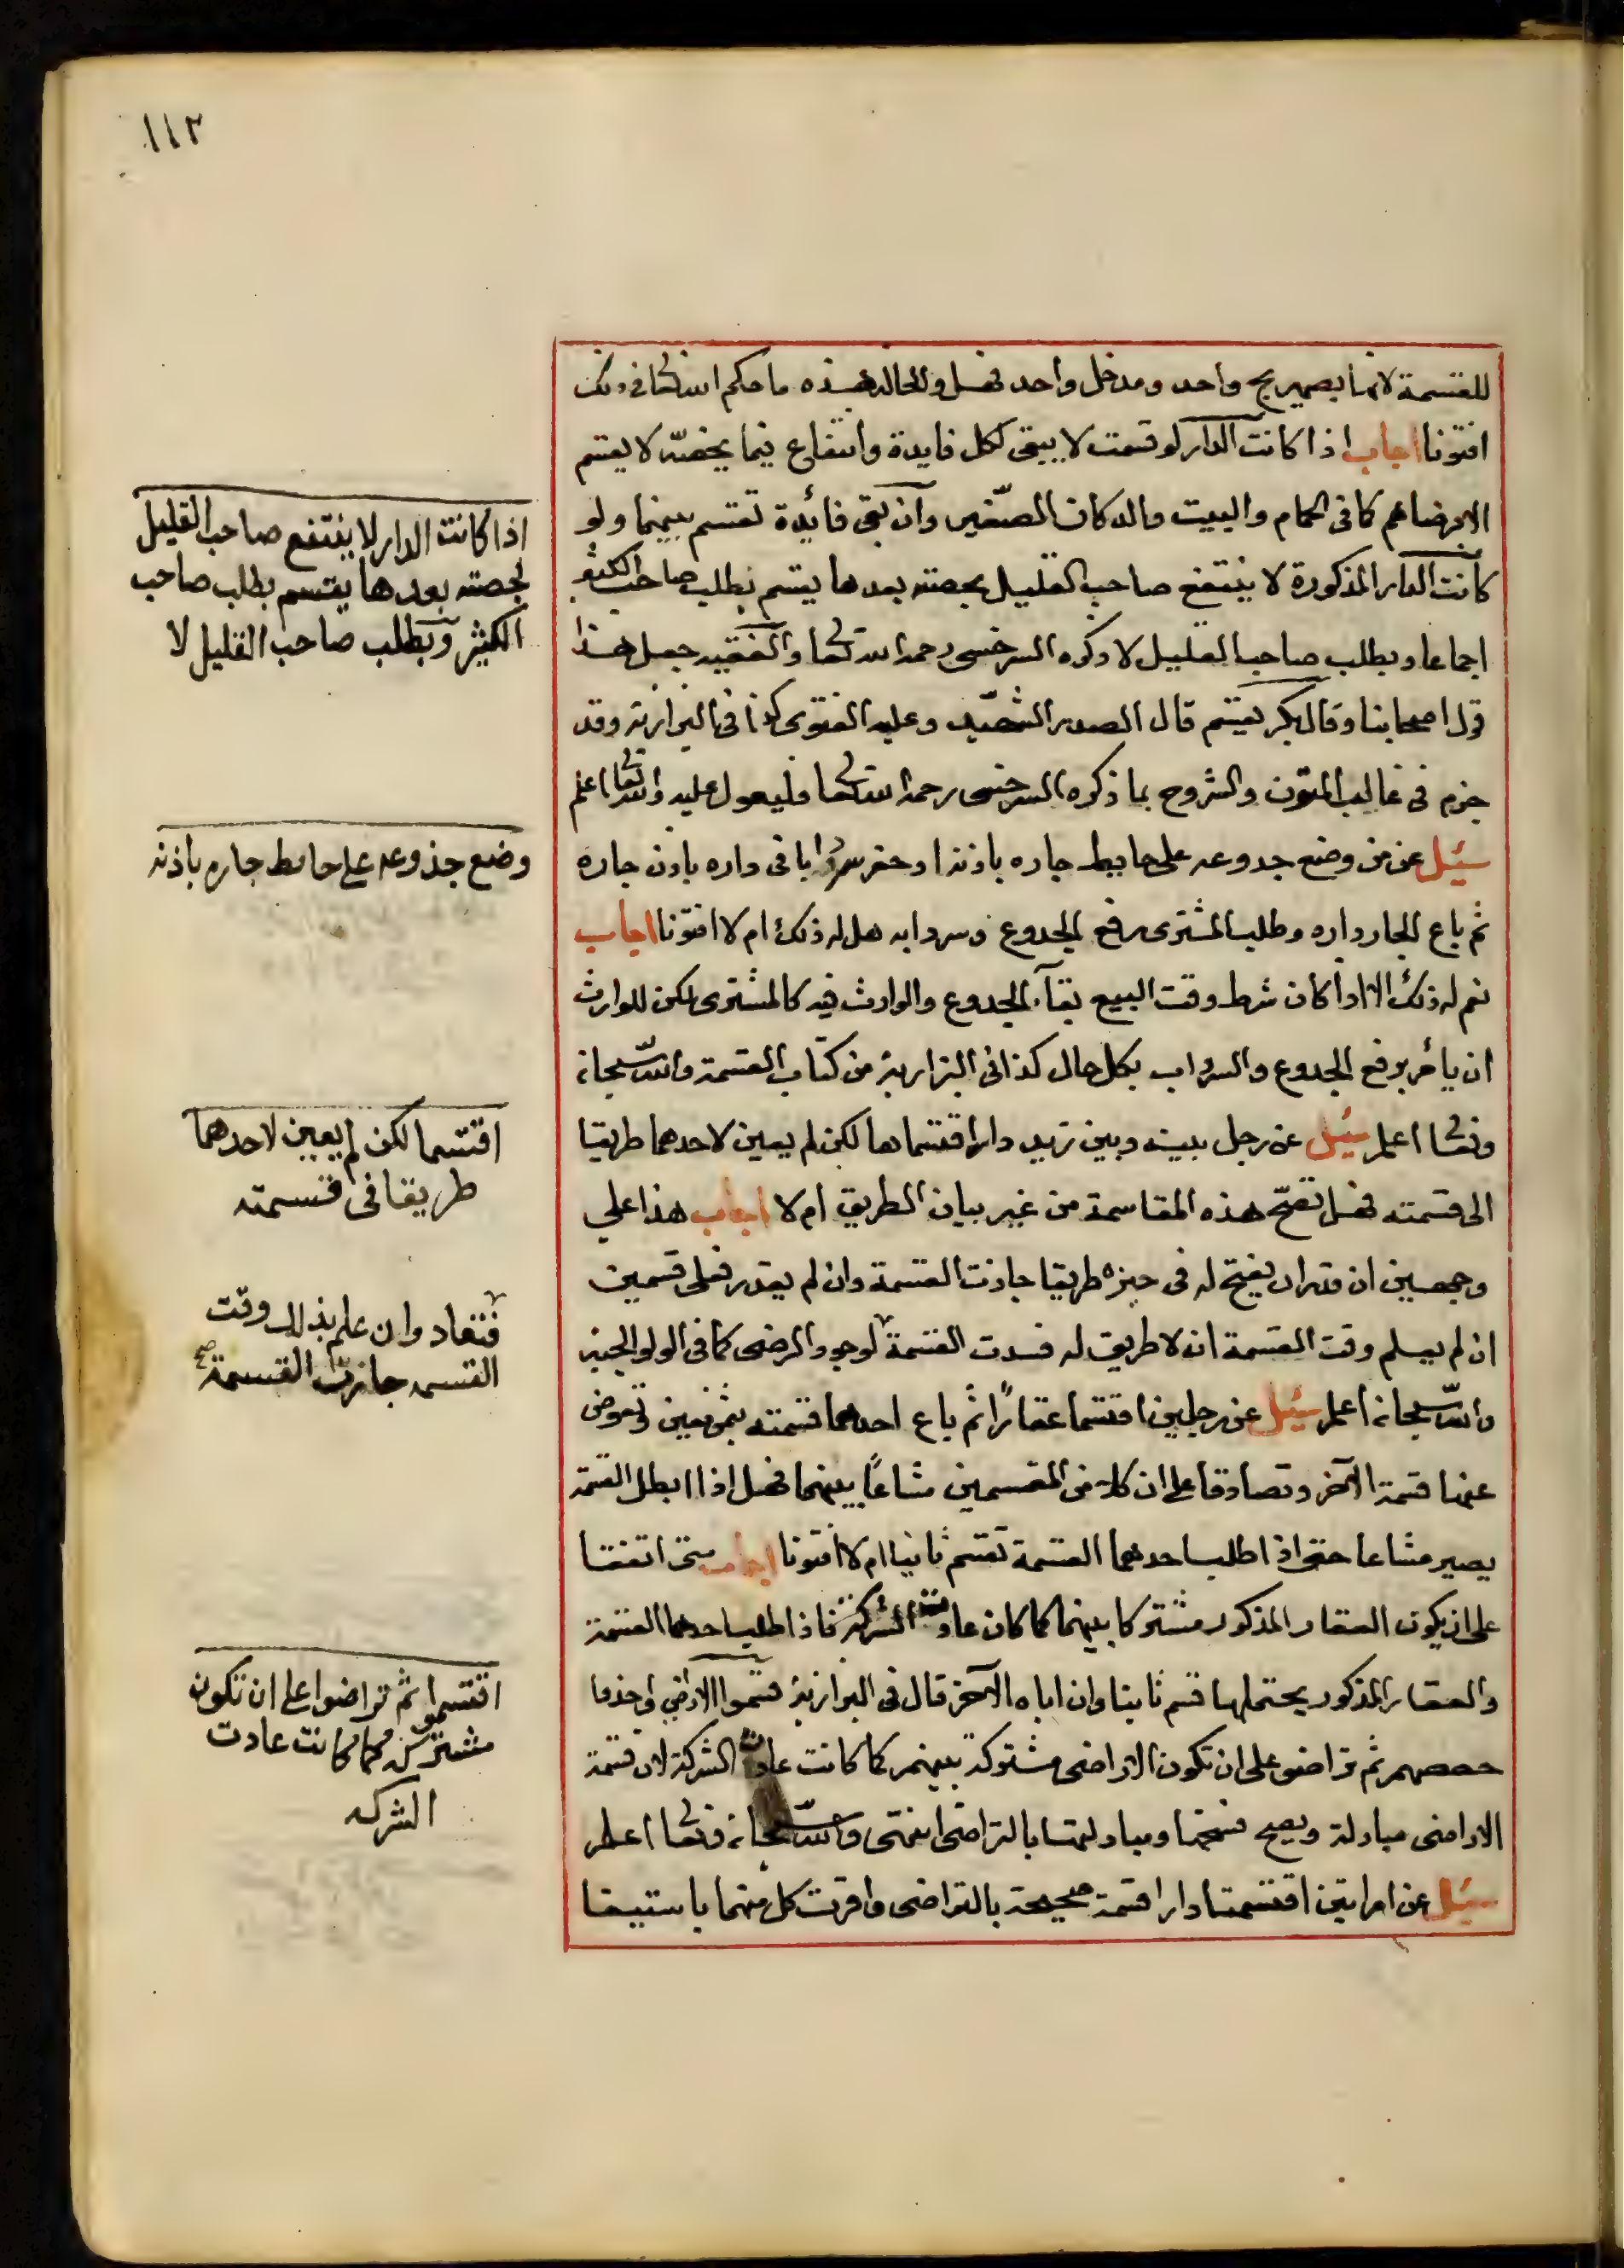 ١١٢
للقسمة لانها بصهريج واحد ومدخل واحد فهل والحالة هذه ما حكم الله تعالى في ذلك
افتونا اجاب اذا كانت الدار لو قسمت لا يبقى لكل فايدة وانتفاع فيما يخصّه لا يقسم
الا برضاهم كما في الحمام والبيت والدكان الصّغير وان بقى فائدة تقسم بينهما ولو
كانت الدار المذكورة لا ينتفع صاحب القليل بحصته بعدها يقسم بطلب صاحب الكثير
اجماعا وبطلب صاحب القليل لا ذكره السرخسى رحمه الله تعالى والفقيه جعل هذا
قول اصحابنا وقال بكر يقسم قال الصدر الشهيد وعليه الفتوى كذا في البزازية وقد
جزم في غالب المتون والشروح بما ذكره السرخسى رحمه الله تعالى فليعول عليه والله تعالى اعلم
سئيل عن من وضع جدوعه على حايط جاره باذنه او حفر سردابا في داره باذن جاره
ثم باع الجار داره وطلب المشترى رفع الجدوع وسردابه هل له ذلك ام لا افتونا اجاب
نعم له ذلك الا اذا كان شرط وقت البيع بقآء الجدوع والوارث فيه كالمشترى لكن للوارث
ان يأمر برفع الجدوع والسرداب بكل حال كذا في البزازية من كتاب القسمة والله سبحانه
وتعالى اعلم سئيل عن رجل بينه وبين زيد دار اقتسماها لكن لم يعين لاحدهما طريقا
الى قسمته فهل تصحّ هذه المقاسمة من غير بيان الطريق ام لا اجاب هذا على
وجهين ان قدر ان يفتح له في حيزه طريقا جازت القسمة وان لم يقدر فعلى قسمين
ان لم يعلم وقت القسمة ان لا طريق له فسدت القسمة لوجود الرضى كما في الولوالجية
والله سبحانه اعلم سئيل عن رجلين اقتسما عقارًا ثم باع احدهما قسمته بثمن معين وتعوض
عنها قسمة الآخر وتصادقا على ان كلا من القسمين مشاعًا بينهما فهل اذا ابطل القسمة
يصير مشاعا حتى اذا طلب احدهما القسمة تقسم ثانيا ام لا افتونا اجاب متى اتفقا
على ان يكون العقار المذكور مشتركا بينهما كما كان عادت الشركة فاذا طلب احدهما القسمة
والعقار المذكور يحتملها قسم ثانيا وان اباه الآخر قال في البزازية قسموا الاراضي واخذوا
حصصهم ثم تراضوا على ان تكون الاراضي مشتركة بينهم كما كانت عادت الشركة لان قسمة
الاراضي مبادلة ويصح فسخها ومبادلتها بالتراضي انتهى والله سبحانه وتعالى اعلم
سئيل عن امراتين اقتسمتا دارا قسمة صحيحة بالتراضي واقرت كل منهما باستيفا
اذا كانت الدار لا ينتفع صاحب القليل
بحصته بعدها يقسم بطلب صاحب
الكثير وبطلب صاحب القليل لا
وضع جذوعه على حايط جاره باذنه
اقتسما لكن لم يعين لاحدهما
طريقا في قسمته
فتعاد وان علم بذلك وقت
القسمه جازت القسمة صح
اقتسموا ثم تراضوا على ان تكون
مشتركة كما كانت عادت
الشركه